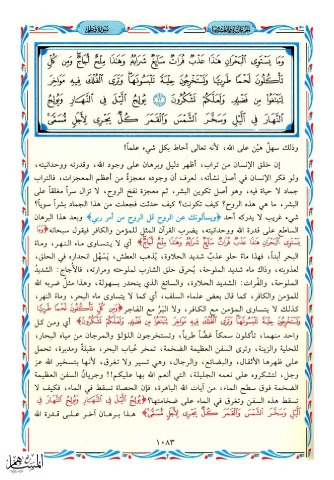 سورة فاطر
وَمَا يَسْتَوِي الْبَحْرَانِ هَذَا عَذْبٌ فُرَاتٌ سَائِغٌ شَرَابُهُ وَهَذَا مِلْحٌ أُجَاجٌ وَمِن كُلٍّ
تَأْكُلُونَ لَحْمًا طَرِيًّا وَتَسْتَخْرِجُونَ حِلْيَةً تَلْبَسُونَهَا وَتَرَى الْفُلْكَ فِيهِ مَوَاخِرَ
لِتَبْتَغُوا مِن فَضْلِهِ وَلَعَلَّكُمْ تَشْكُرُونَ ۝ يُولِجُ اللَّيْلَ فِي النَّهَارِ وَيُولِجُ
النَّهَارَ فِي اللَّيْلِ وَسَخَّرَ الشَّمْسَ وَالْقَمَرَ كُلٌّ يَجْرِي لِأَجَلٍ مُسَمًّى
وذلك سهلٌ هيّن على الله، لأنه تعالى أحاط بكل شيء علماً!
إن خلق الإنسان من تراب، أظهر دليل وبرهان على وجود الله، وقدرته ووحدانيته،
ولو فكر الإنسان في أصل نشأته، لعرف أن وجوده معجزةٌ من أعظم المعجزات، فالتراب
جماد لا حياة فيه، وهو أصل تكوين البشر، ثم معجزة نفخ الروح، لا تزال سراً مغلقاً على
البشر، ما هي هذه الروح؟ كيف تكونت؟ كيف حدثت فجعلت من هذا الجماد بشراً سوياً؟
شيء غريب لا يدركه أحد ﴿ويسألونك عن الروح قل الروح من أمر ربي﴾ وبعد هذا البرهان
الساطع على قدرة الله ووحدانيته، يضرب القرآن المثل للمؤمن والكافر فيقول سبحانه ﴿وَمَا
يَسْتَوِي الْبَحْرَانِ هَذَا عَذْبٌ فُرَاتٌ سَائِغٌ شَرَابُهُ وَهَذَا مِلْحٌ أُجَاجٌ﴾ أي لا يتساوى ماء النهر، وماء
البحر أبداً، فهذا ماءٌ حلو عذبٌ شديد الحلاوة، يُذهب العطش، يسهُل انحداره في الحلق،
لعذوبته، وذاك ماء شديد الملوحة، يُحرق حلق الشارب لملوحته ومرارته، فالأُجاج: الشديدُ
الملوحة، والفرات: الشديد الحلاوة، والسائغ الذي ينحدر بسهولة، وهذا مثلٌ ضربه الله
للمؤمن والكافر، كما قال بعض علماء السلف، أي كما لا يتساوى ماء البحر، وماء النهر،
كذلك لا يتساوى المؤمن مع الكافر، ولا البَرُّ مع الفاجر ﴿وَمِن كُلٍّ تَأْكُلُونَ لَحْمًا طَرِيًّا
وَتَسْتَخْرِجُونَ حِلْيَةً تَلْبَسُونَهَا وَتَرَى الْفُلْكَ فِيهِ مَوَاخِرَ لِتَبْتَغُوا مِن فَضْلِهِ وَلَعَلَّكُمْ تَشْكُرُونَ﴾ أي ومن كل
واحد منهما، تأكلون سمكاً غضاً طرياً، وتستخرجون اللؤلؤ والمرجان من مياه البحار،
للحلية والزينة، وترى السفن العظيمة الضخمة، تمخر عُباب البحر، مقبلةً ومدبرة، تحمل
على ظهرها الأثقال، والبضائع، والرجال، وهي تسير ولا تغرق، لأنها بتسخير الله عز
وجل، لتشكروه على نعمه الجليلة، التي أنعم الله بها عليكم!! وجريانُ السفن العظيمة
الضخمة فوق سطح الماء، من آيات الله الباهرة، فإن الحصاة تسقط في الماء، فكيف لا
تسقط هذه السفن وتغرق في الماء على ضخامتها؟ ﴿يُولِجُ اللَّيْلَ فِي النَّهَارِ وَيُولِجُ النَّهَارَ فِي
اللَّيْلِ وَسَخَّرَ الشَّمْسَ وَالْقَمَرَ كُلٌّ يَجْرِي لِأَجَلٍ مُسَمًّى﴾ هذا برهان آخر على قدرة الله
١٠٨٣